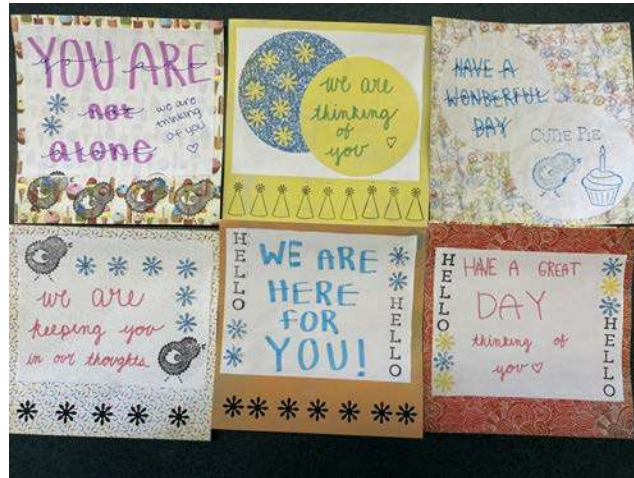 YOU ARE
you are
not
alone
we are
thinking
of you
we are
thinking
of
you
HAVE A
WONDERFUL
DAY
CUTIE PIE
we are
keeping you
in our thoughts
HELLO
WE ARE
HERE
FOR
YOU!
HELLO
HELLO
HAVE A GREAT
DAY
thinking of
you
HELLO